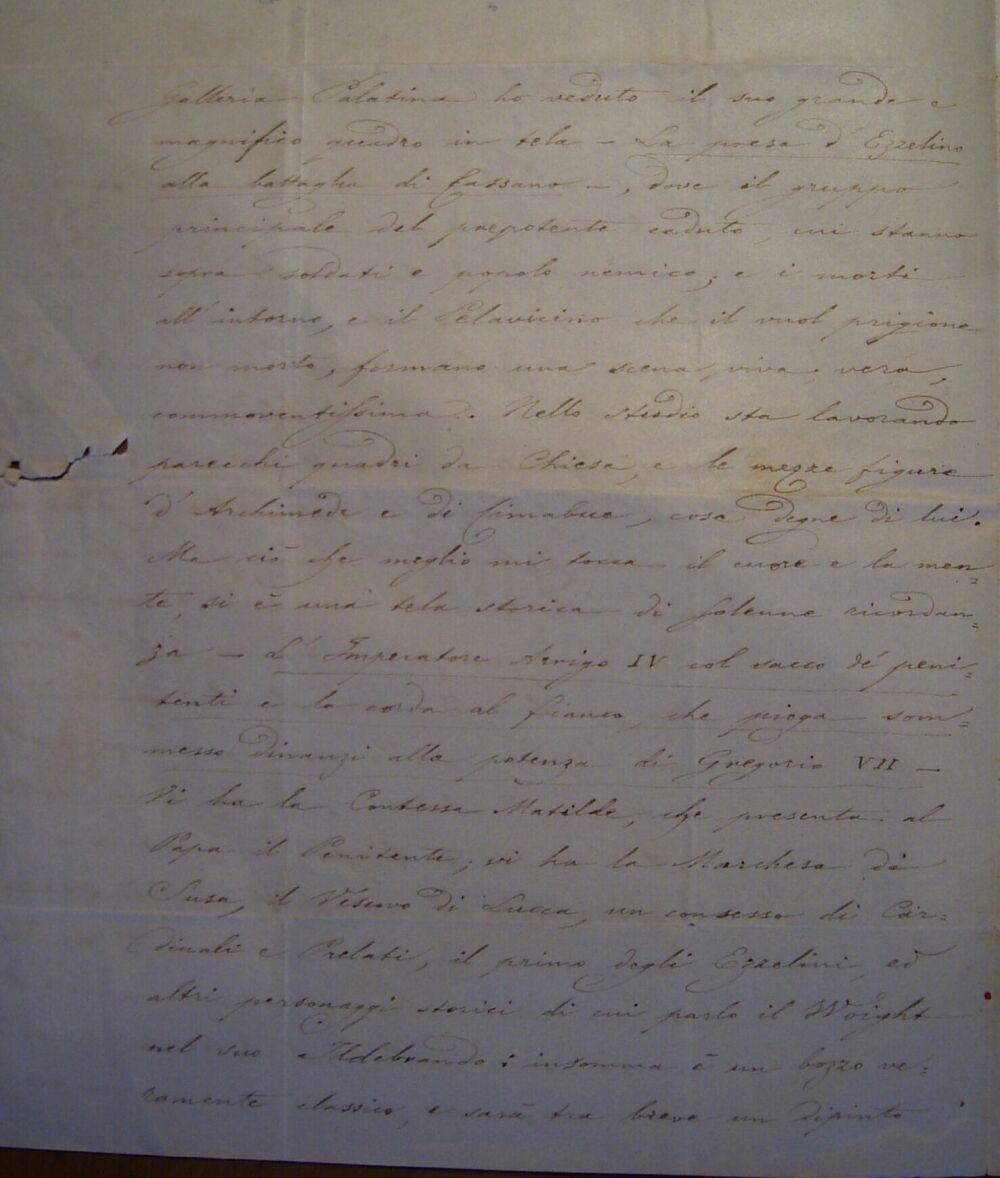 Galleria Palatina ho veduto il suo grande e
magnifico quadro in tela – La presa d'Ezzelino
alla battaglia di Cassano –, dove il gruppo
principale del prepotente caduto, cui stanno
sopra soldati e popolo nemico; e i morti
all'intorno, e il Pelavicino che il vuol prigione
non morto, formano una scena, viva, vera,
commoventissima. Nello studio sta lavorando
parecchi quadri da Chiesa, e le mezze figure
d'Archimede e di Cimabue, cosa degne di lui.
Ma ciò che meglio mi tocca il cuore e la men=
te, si è una tela storica di solenne ricordan=
za – L'Imperatore Arrigo IV col sacco dé peni=
tenti e la corda al fianco, che piega som=
messo dinanzi alla potenza di Gregorio VII –
Vi ha la Contessa Matilde, che presenta al
Papa il Penitente; vi ha la Marchesa di
Susa, il Vescovo di Lucca, un consesso di Car=
dinali e Prelati, il primo degli Ezzelini, ed
altri personaggi storici di cui parlo il Woight
nel suo Ildebrando: insomma è un bozzo ve=
ramente classico, e sarà tra breve un dipinto